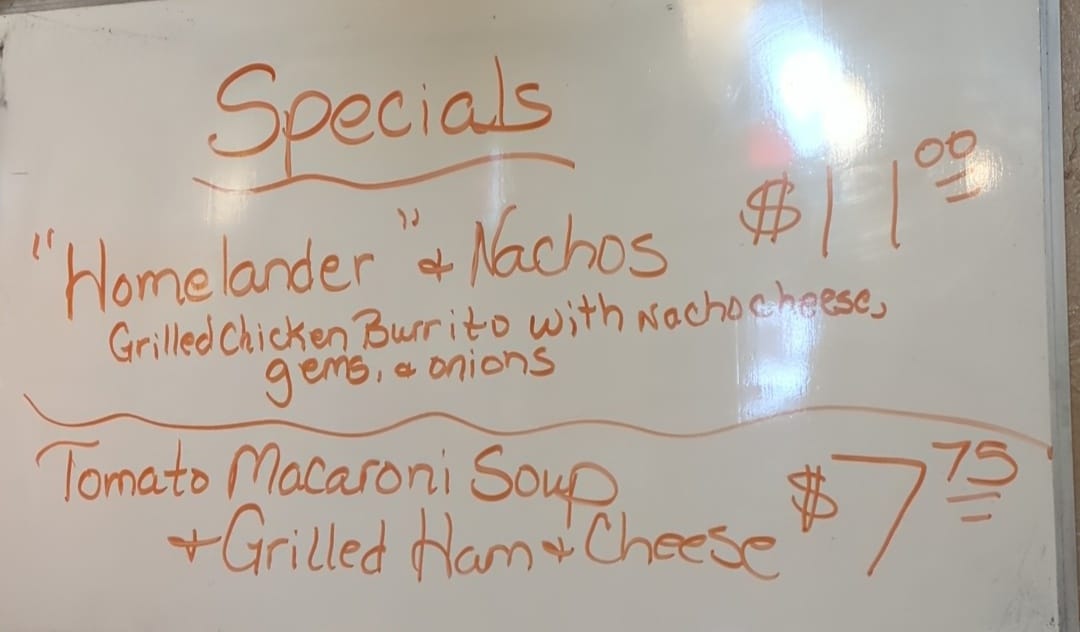 Specials
"Homelander" & Nachos $11.00
Grilled Chicken Burrito with Nacho cheese,
gems, & onions
Tomato Macaroni Soup
+ Grilled Ham + Cheese $7.75